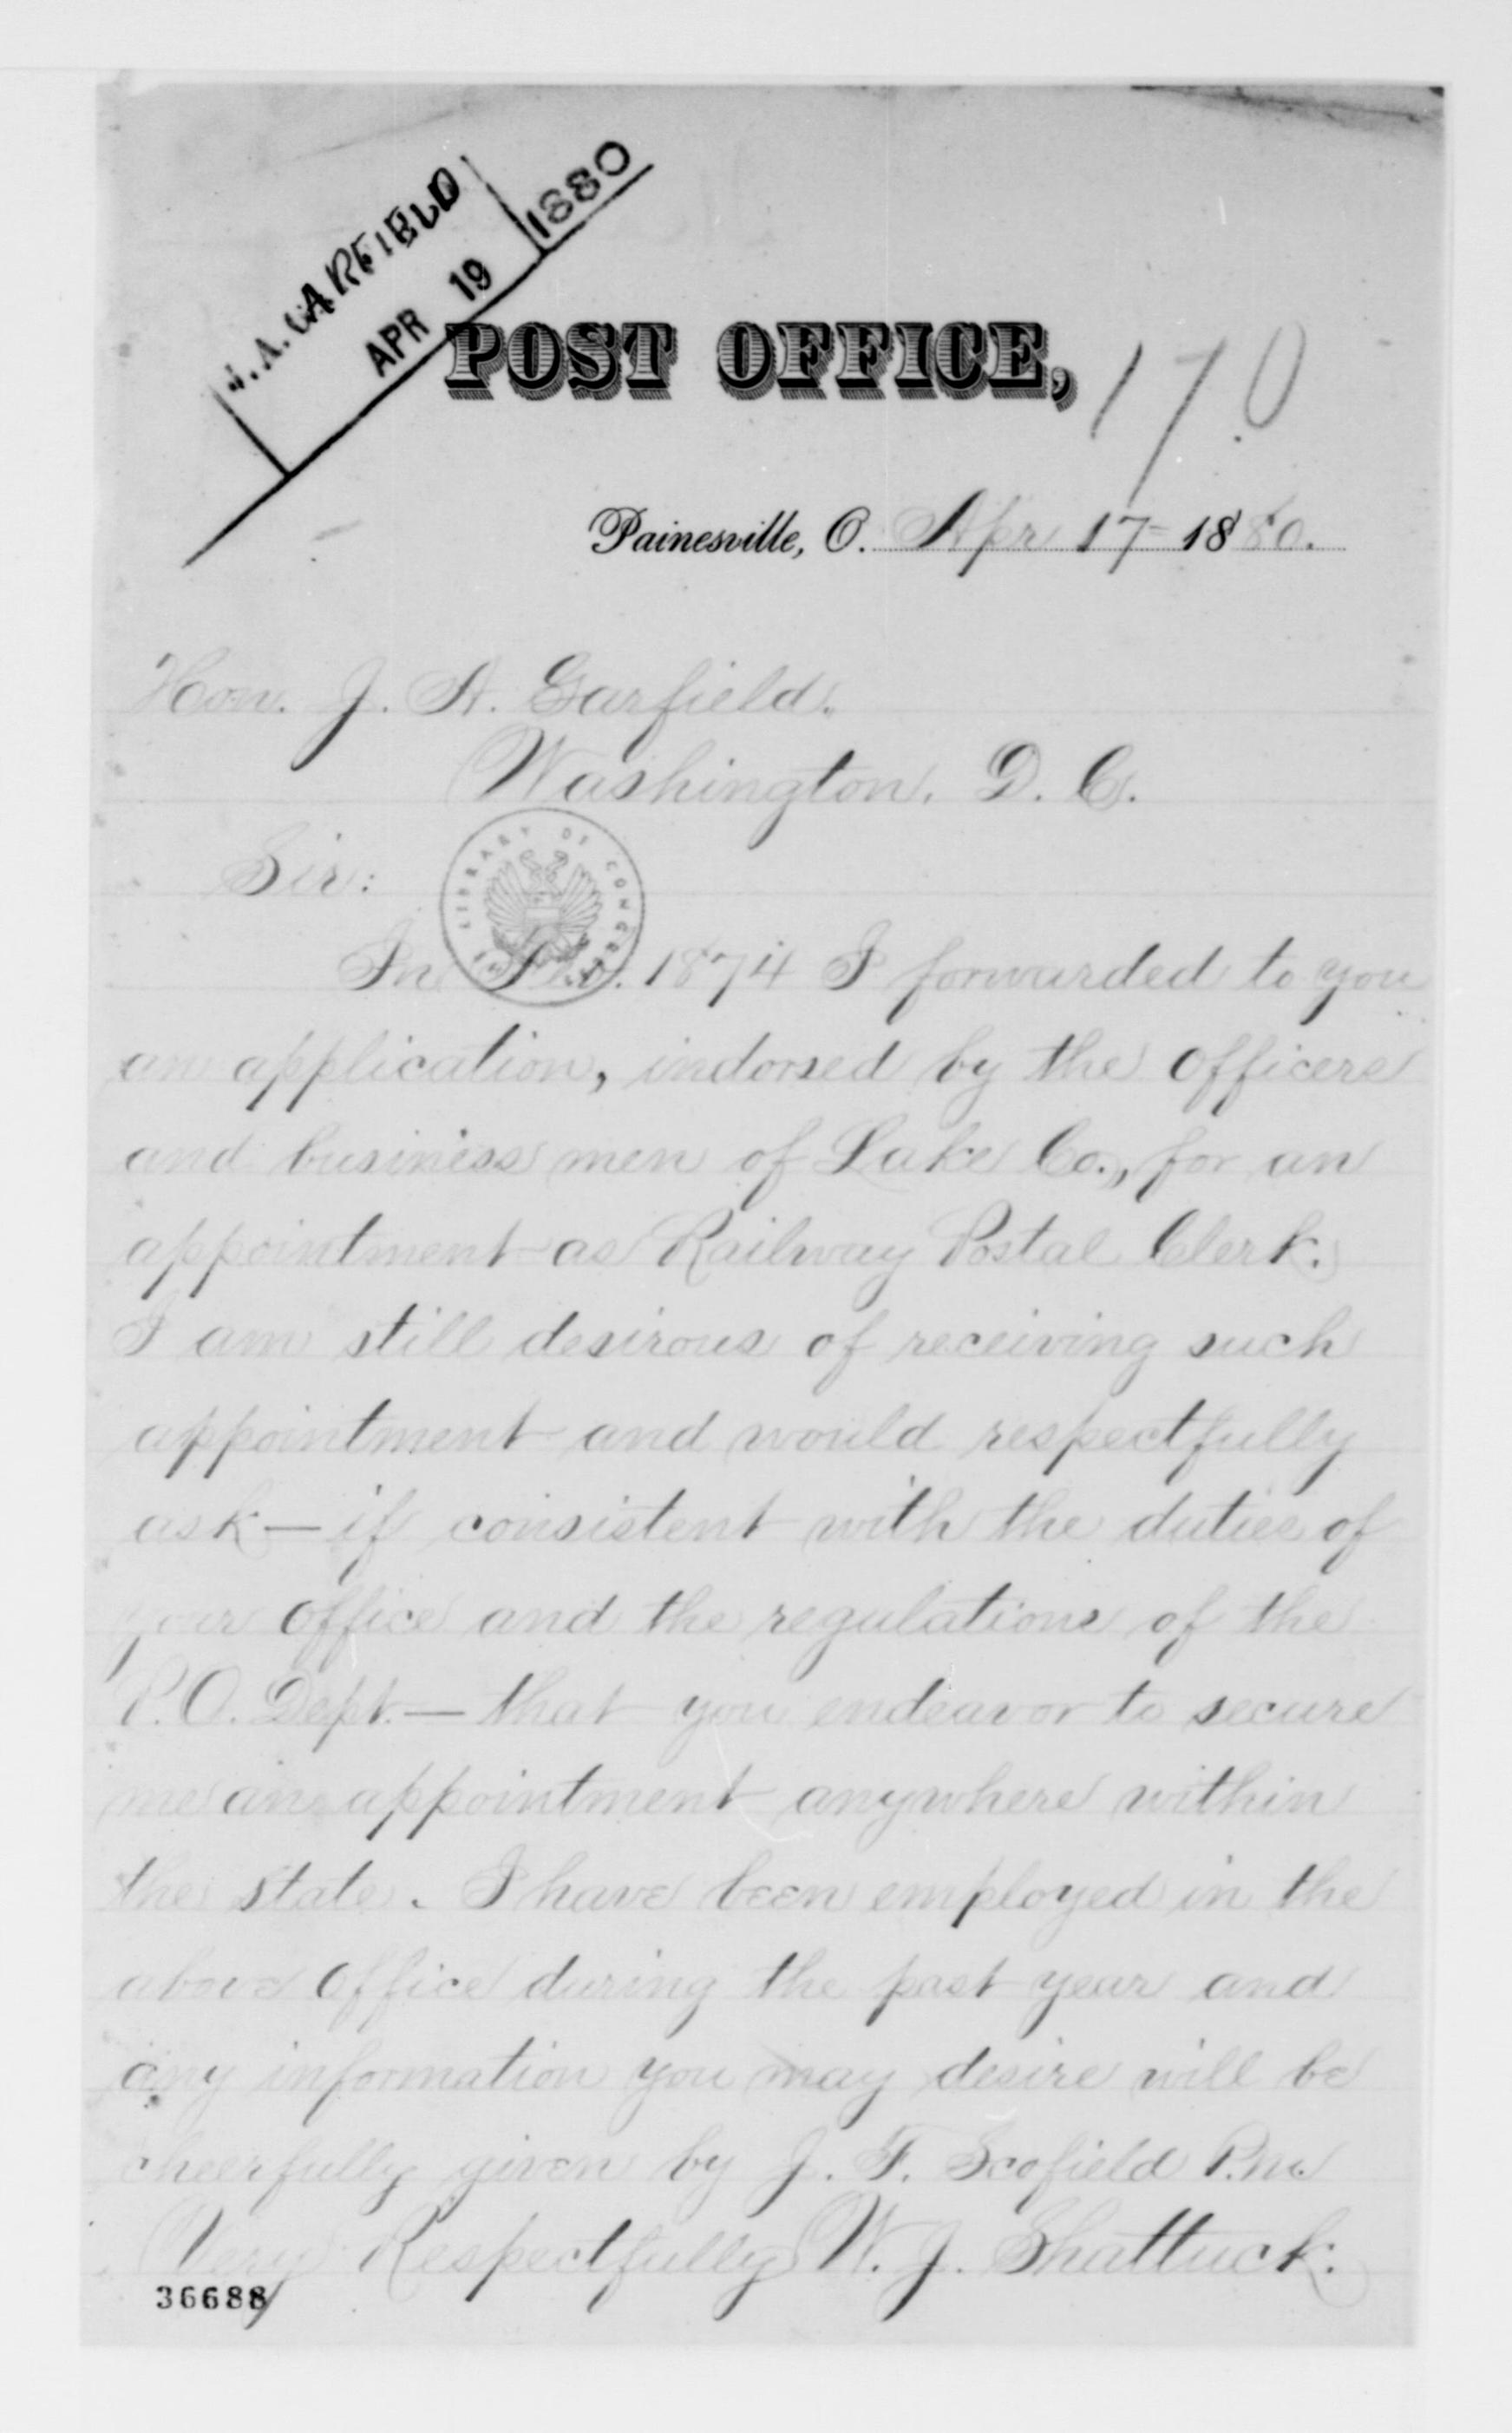 J. A. GARFIELD
APR 19 1880
POST OFFICE,
170
Painesville, O. Apr 17 1880.
Hon. J. A. Garfield.
Washington. D. C.
Sir:
LIBRARY OF CONGRESS
In 1874 I forwarded to you
an application, indorsed by the officers
and business men of Lake Co., for an
appointment as Railway Postal Clerk.
I am still desirous of receiving such
appointment and would respectfully
ask — if consistent with the duties of
your office and the regulations of the
P.O. Dept. — that you endeavor to secure
me an appointment anywhere within
the state. I have been employed in the
above office during the past year and
any information you may desire will be
cheerfully given by J. F. Scofield P.M.
Very Respectfully W. J. Shattuck.
36688